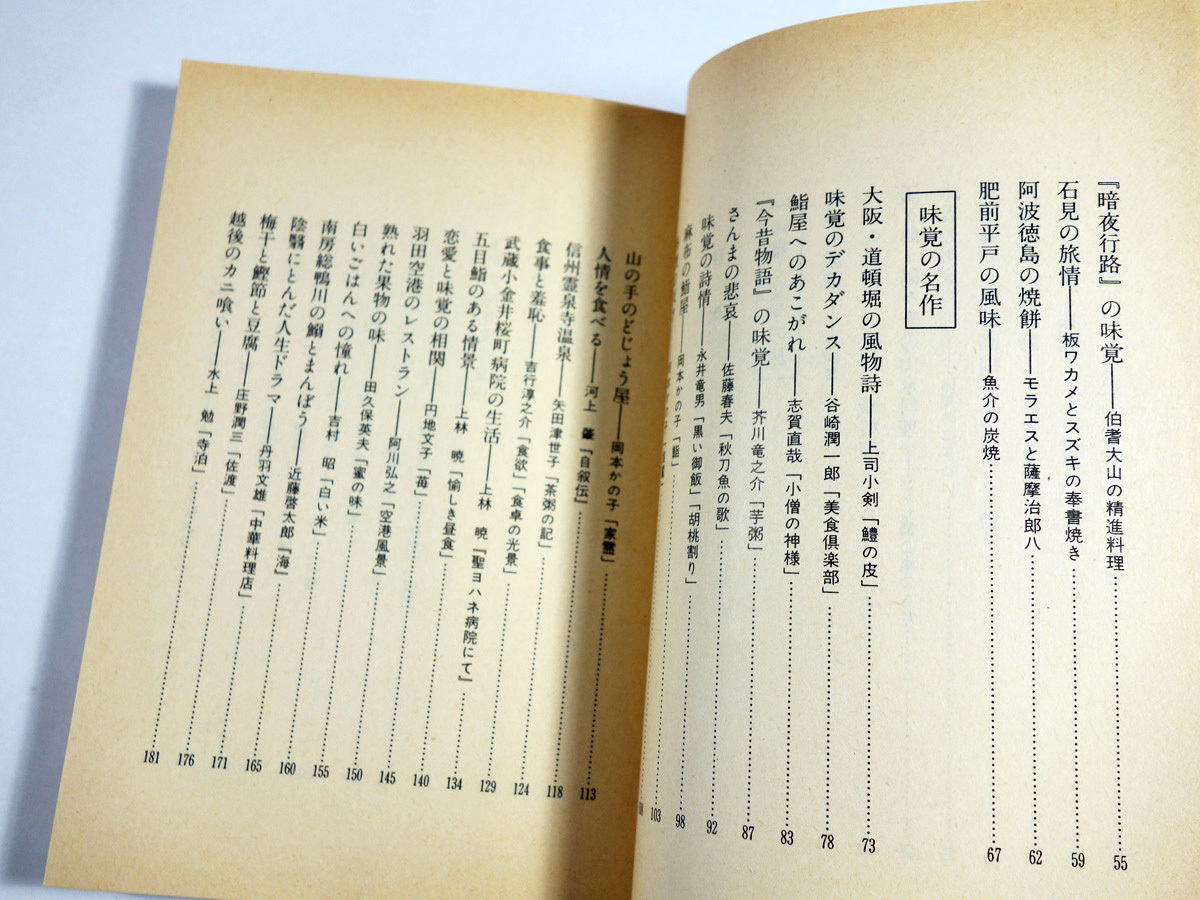 『暗夜行路』の味覚――伯耆大山の精進料理……55
石見の旅情――板ワカメとスズキの奉書焼き……59
阿波徳島の焼餅――モラエスと薩摩治郎八……62
肥前平戸の風味――魚介の炭焼……67
味覚の名作
大阪・道頓堀の風物詩――上司小剣「鱧の皮」……73
味覚のデカダンス――谷崎潤一郎「美食倶楽部」……78
鮨屋へのあこがれ――志賀直哉「小僧の神様」……83
『今昔物語』の味覚――芥川竜之介「芋粥」……87
さんまの悲哀――佐藤春夫「秋刀魚の歌」……92
味覚の詩情――永井竜男「黒い御飯」「胡桃割り」……98
麻布の鮨屋――岡本かの子「鮨」……103
山の手のどじょう屋――岡本かの子「家霊」……113
人情を食べる――河上 肇「自叙伝」……118
信州霊泉寺温泉――矢田津世子「茶粥の記」……124
食事と羞恥――吉行淳之介「食欲」「食卓の光景」……129
武蔵小金井桜町病院の生活――上林 暁『聖ヨハネ病院にて』……134
五目鮨のある情景――上林 暁「愉しき昼食」……140
恋愛と味覚の相関――円地文子「苺」……145
羽田空港のレストラン――阿川弘之「空港風景」……150
熟れた果物の味――田久保英夫「蜜の味」……155
白いごはんへの憧れ――吉村 昭「白い米」……160
南房総鴨川の鰯とまんぼう――近藤啓太郎『海』……165
陰翳にとんだ人生ドラマ――丹羽文雄「中華料理店」……171
梅干と鰹節と豆腐――庄野潤三「佐渡」……176
越後のカニ喰い――水上 勉「寺泊」……181